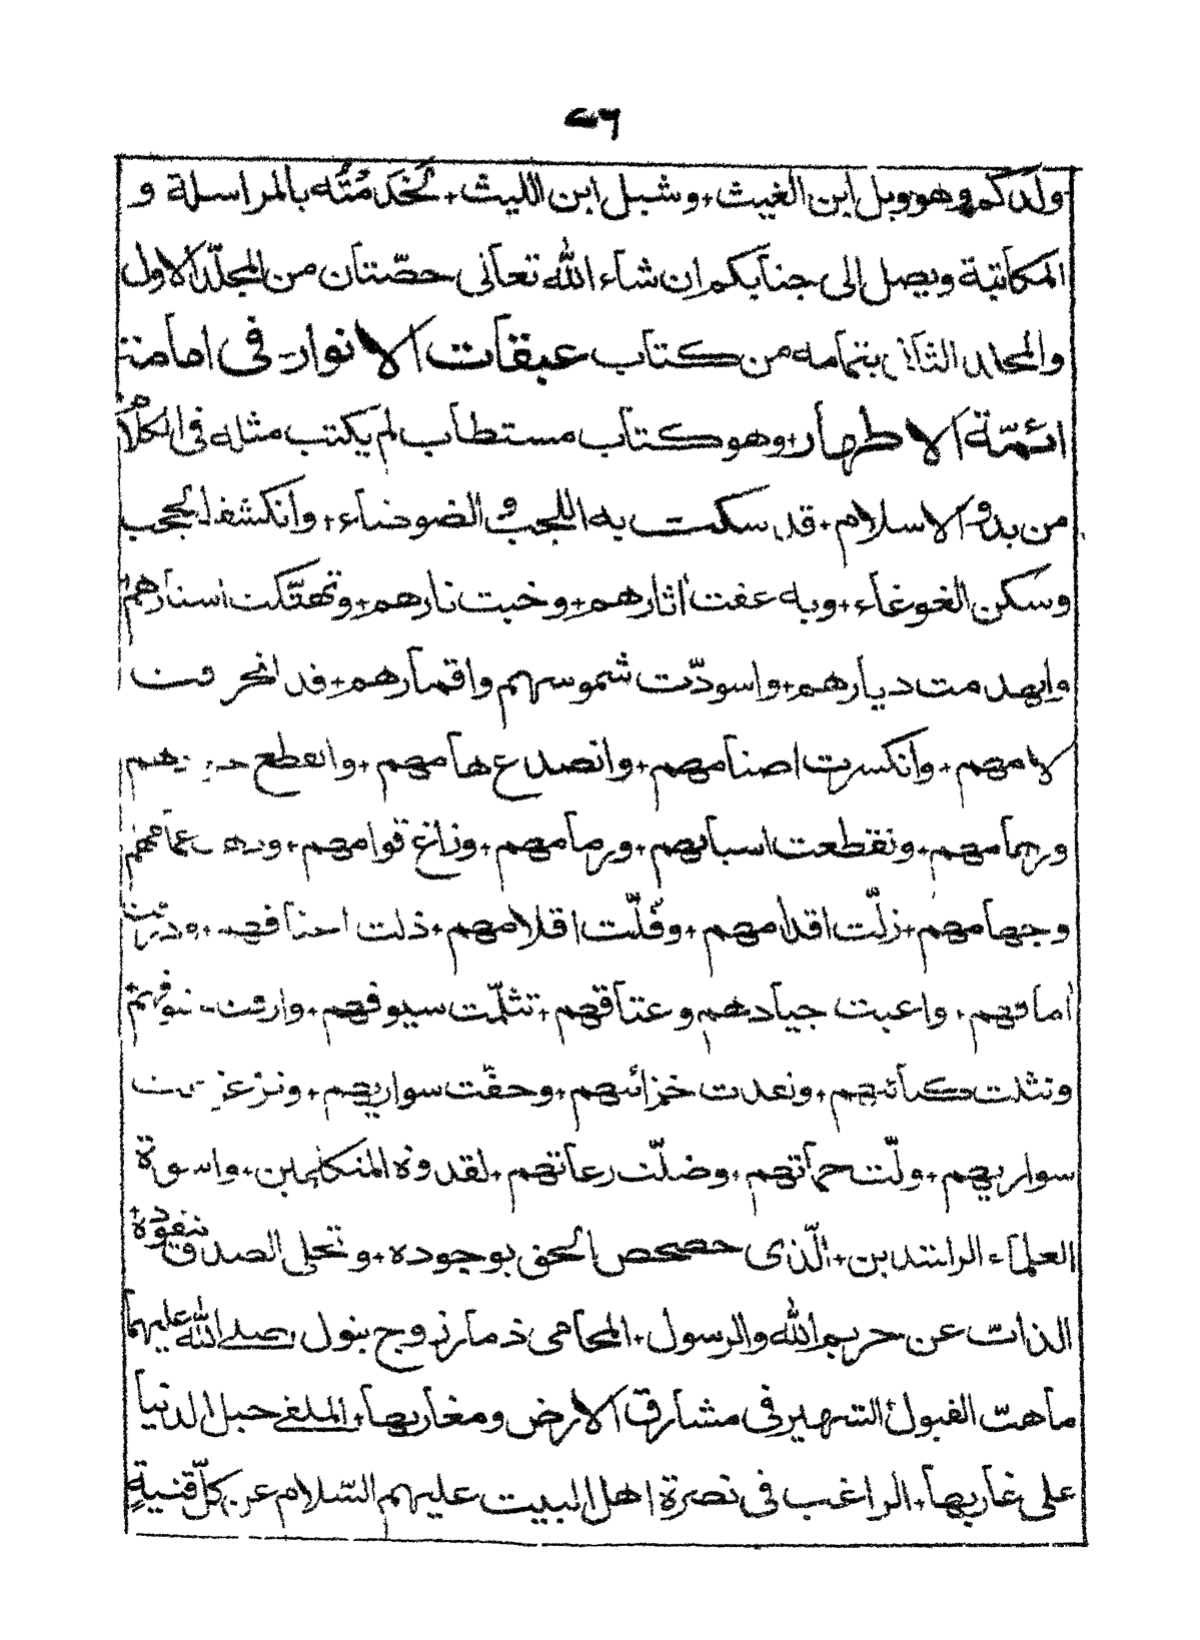 ولدكم وهو وبل ابن الغيث + وشبل ابن الليث + لخدمته بالمراسلة و
المكاتبة ويصل الى جنابكم ان شاء الله تعالى حصّتان من المجلّد الاول
والمجلد الثانى بتمامه من كتاب عبقات الانوار فى امامة
ائمّة الاطهار + وهو كتاب مستطاب لم يكتب مثله فى الكلام
من بدو الاسلام + قد سكت به اللجب و الضوضاء + وانكشف الحجب
وسكن الغوغاء + وبه عفت اثارهم + وخبت نارهم + وتهتّكت استارهم
وانهدمت ديارهم + واسودّت شموسهم واقمارهم + قد انحرفت
لامهم + وانكسرت اصنامهم + وانصدع هامهم + وانقطع
+ وتقطعت اسبابهم + ورمامهم + وزاغ قوامهم +
وجهامهم + زلّت اقدامهم + وفلّت اقلامهم + ذلت
اماقهم + جيادهم وعتاقهم + تثلّمت سيوفهم +
كتائبهم + خزائنهم + سواريهم +
سواريهم + وولّت حماتهم + وضلّت رعاتهم + لقدوة المتكلمين + واسوة
العلماء الراشدين + الّذى حصحص الحق بوجوده + وتجلى الصدق بنقوده +
الذابّ عن حريم الله والرسول + المحامى ذمار زوج بتول صلى الله عليهما
ما هبّ القبول الشهير فى مشارق الارض ومغاربها + الملقى حبل الدنيا
على غاربها + الراغب فى نصرة اهل البيت عليهم السّلام عن كلّ قنيةٍ